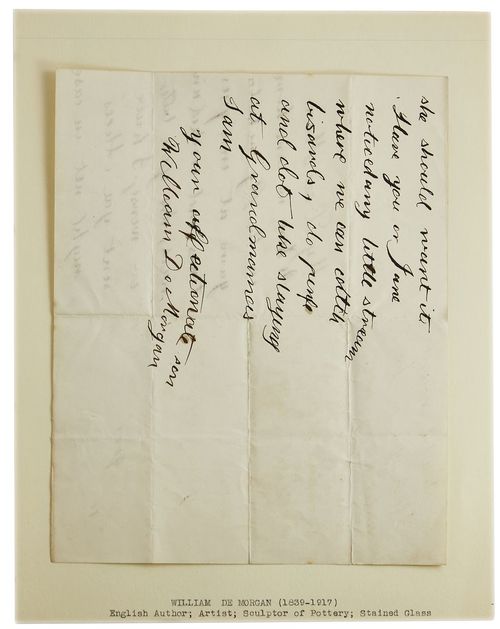 she should want it.
Have you or Jane
noticed any little stream
where we can catch
lizards, do
and dot like staying
at Grandmamas
I am
your affectionate son
William De Morgan
WILLIAM DE MORGAN (1839-1917)
English Author; Artist; Sculptor of Pottery; Stained Glass